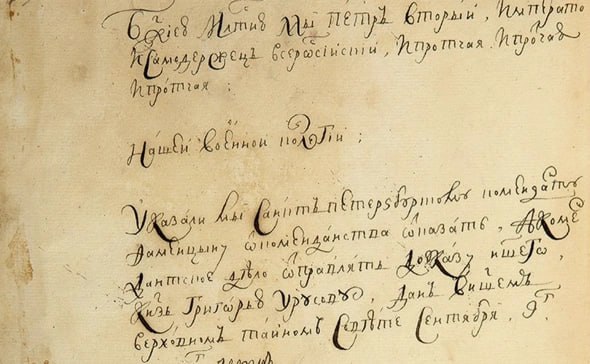 Бжїею млтїю мы петръ вторый, императо
и самодержецъ всеросїискїй, и протчая и протчая
и протчая:
нашей военной колегїи:
Указали мы санктъ петерзбурскому коменданту
 ѿ комендантства ѿказать, а коме
дантское дѣло ѿправлять до указу нашего,
кнзь григорью урусову, данъ в нашемъ
верховномъ тайномъ совѣте сентября, 9г